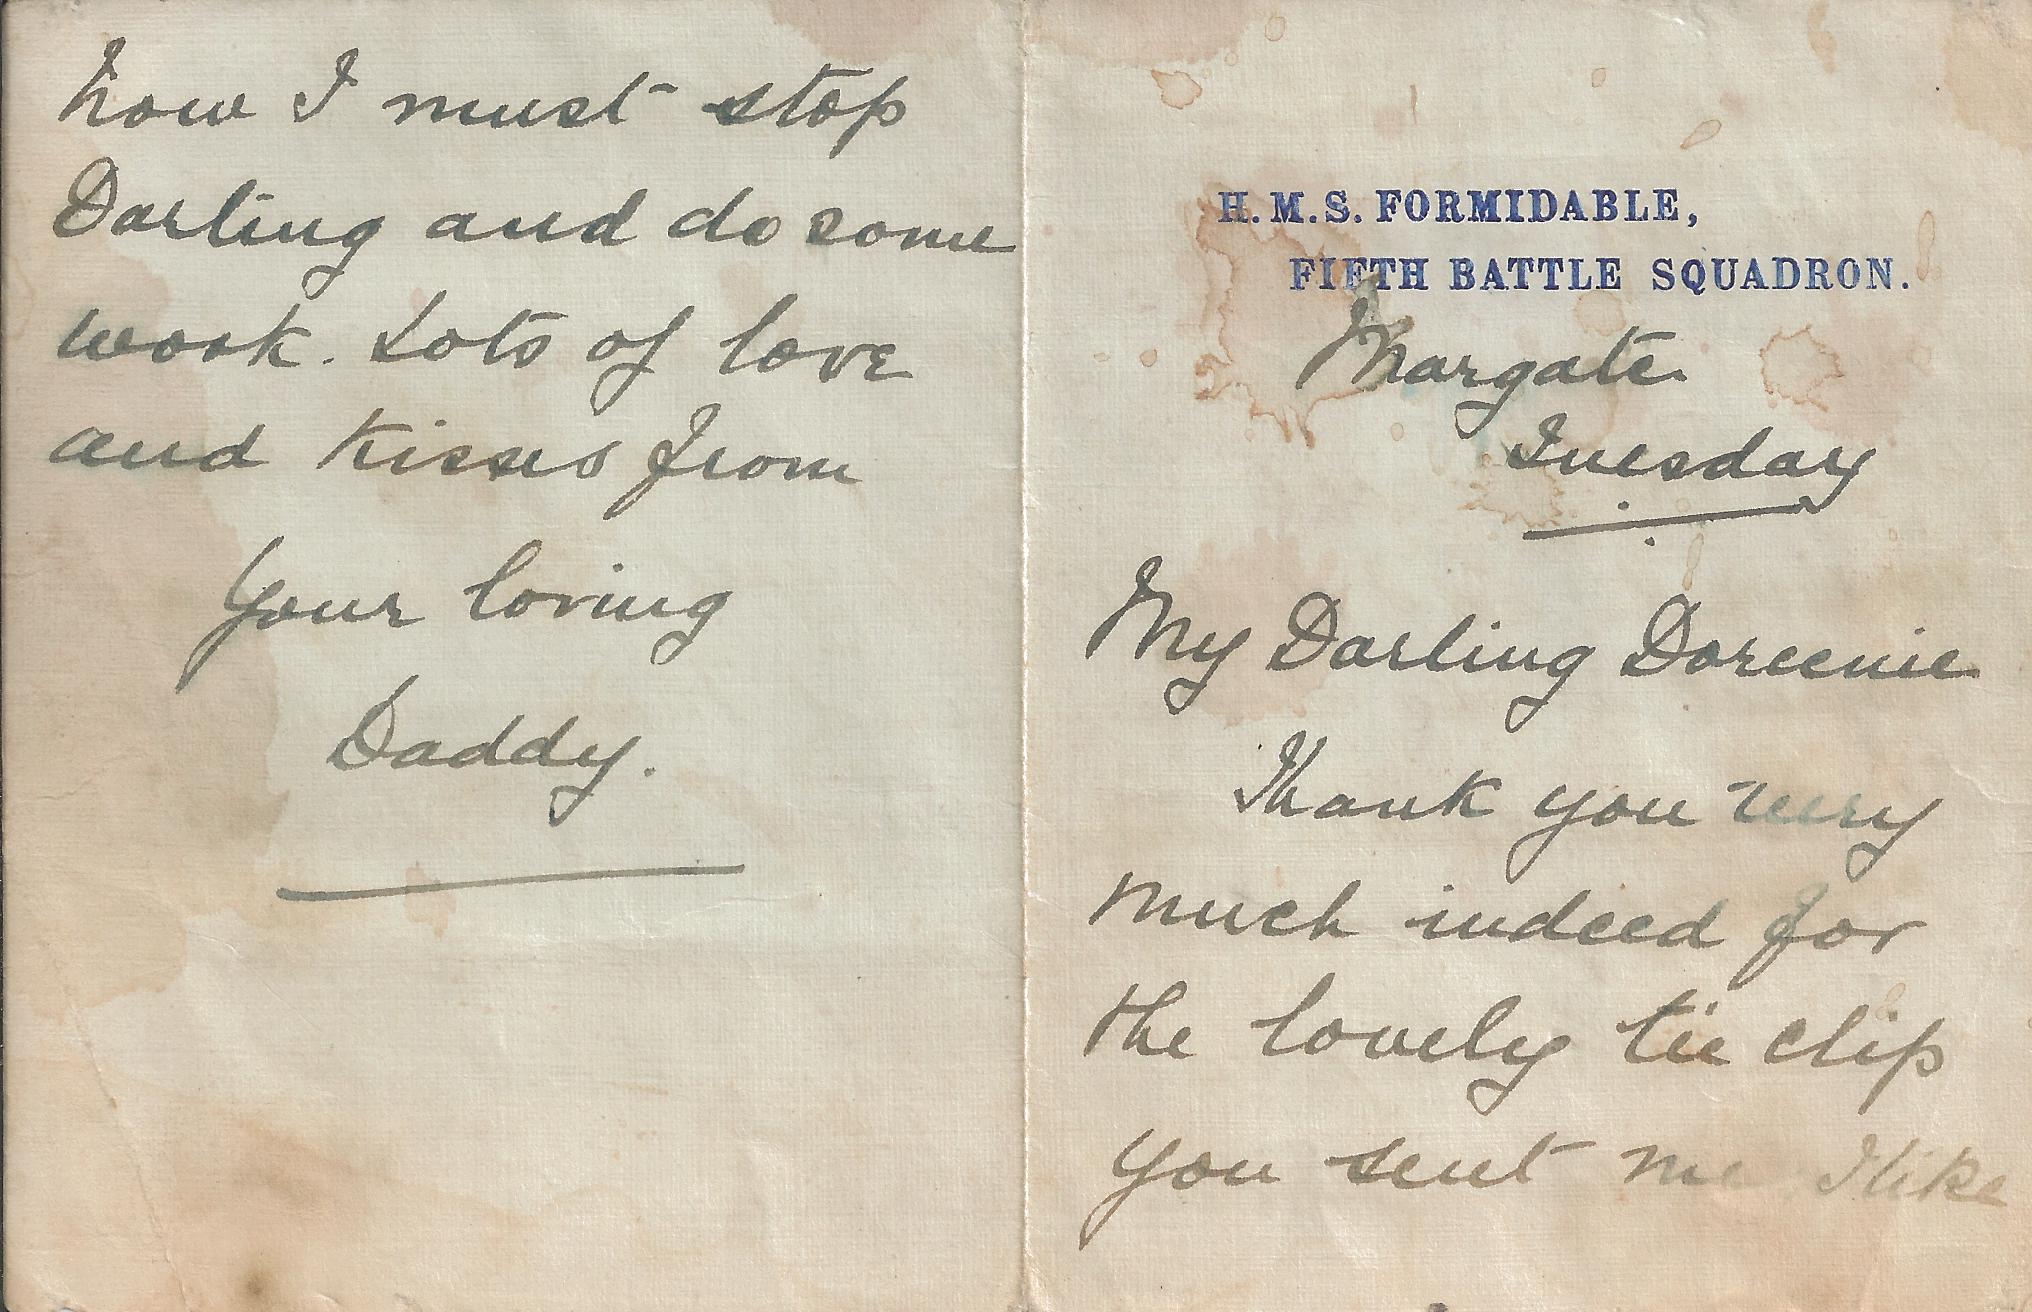 H.M.S. FORMIDABLE,
FIFTH BATTLE SQUADRON.
Margate
Tuesday
My Darling Doreenie
Thank you very
much indeed for
the lovely tie clip
you sent me I like
Now I must stop
Darling and do some
work. Lots of love
and kisses from
Your loving
Daddy.